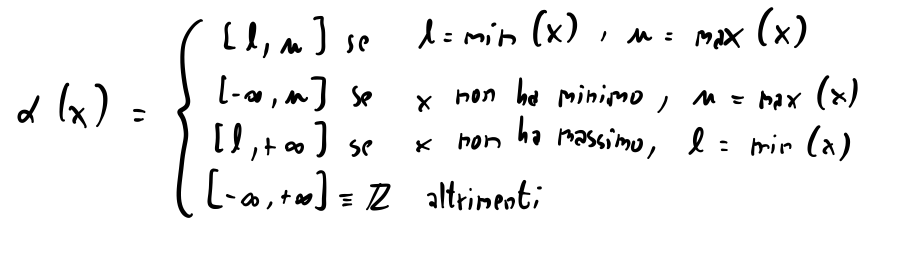 [l, u] se l = min (x) , u = max (x)
[-∞, u] se x non ha minimo , u = max (x)
α (x) =
[l, +∞] se x non ha massimo, l = min (x)
[-∞, +∞] ≡ ℤ altrimenti